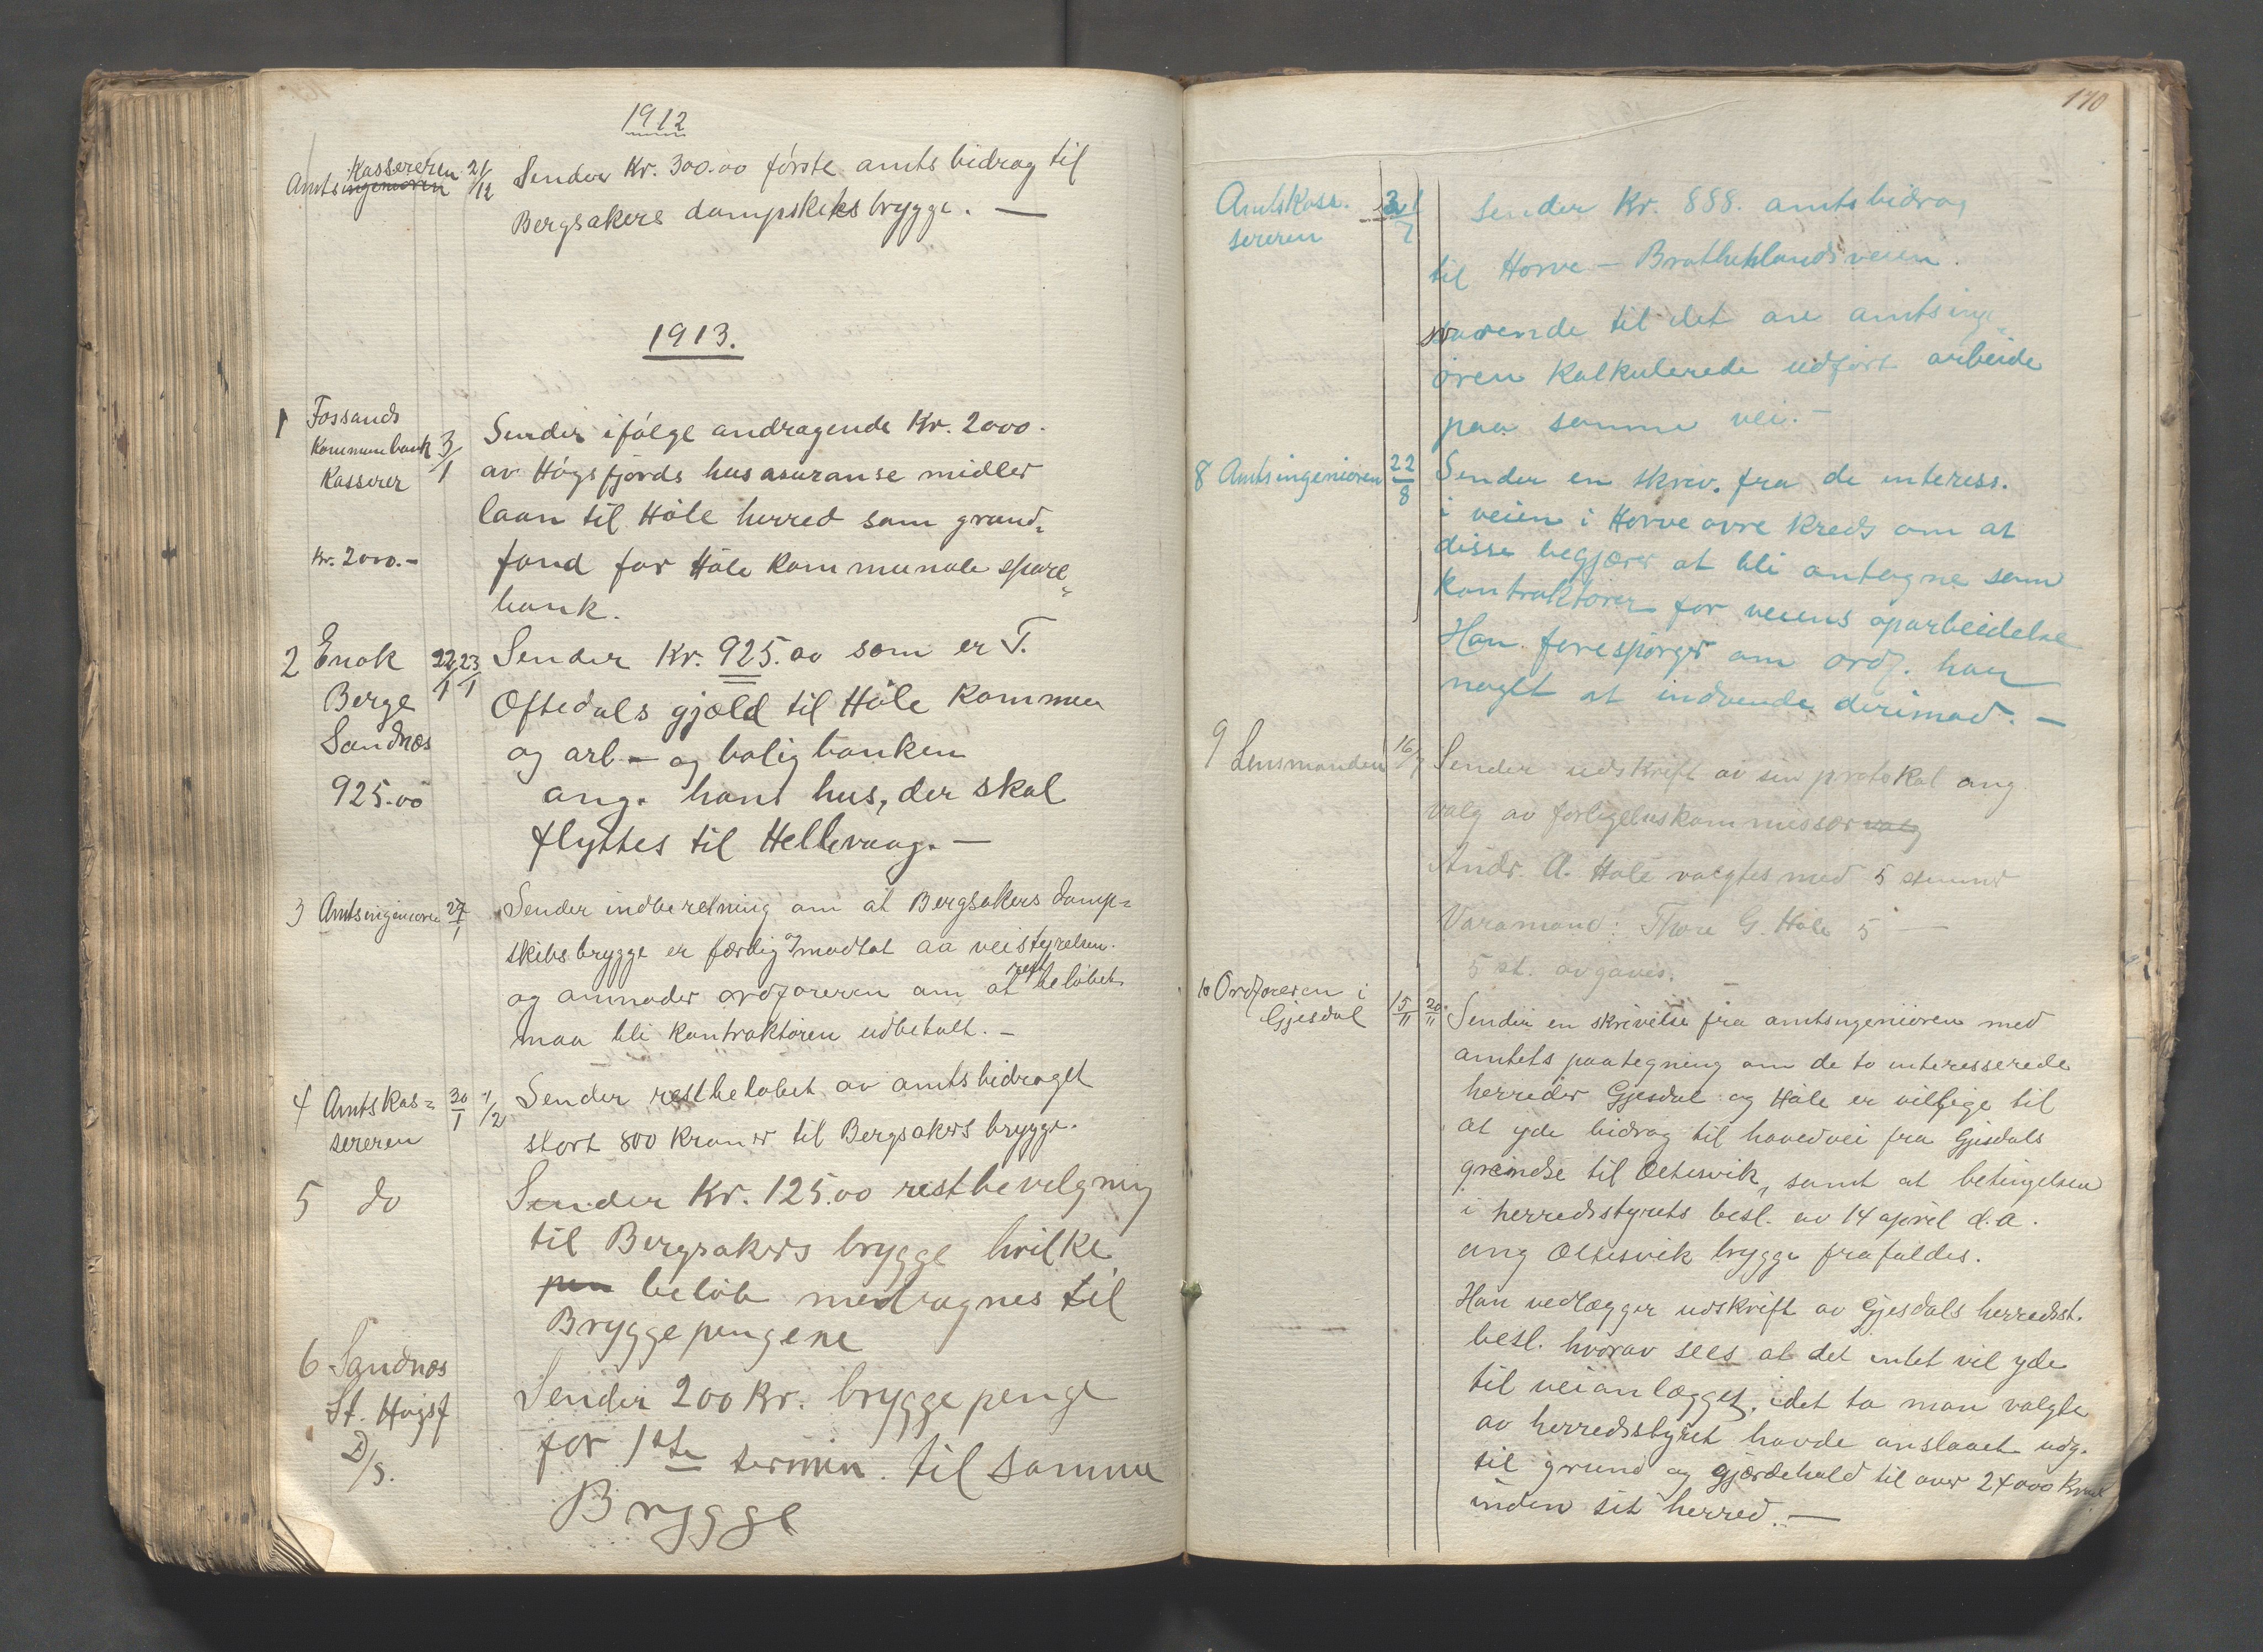 1912
Amtskassereren 21/12 Sender Kr. 300.00 første amtsbidrag til
Bergsakers dampskibsbrygge. —
1913.
1 Fossands
Kommunbank 3/1
Kasserer
Kr. 2000.-
Sender ifølge andragende Kr. 2000.
av Høgsfjords husasuranse midler
laan til Høle herred som grund=
fond for Høle kommunale spare=
bank.
2 Enok 22/1 23/1
Berge
Sandnæs
925.00
Sender Kr. 925.00 som er T.
Oftedals gjæld til Høle kommun
og arb - og boligbanken
ang. hans hus, der skal
flyttes til Hellevaag. —
3 Amtsingeniøren 27/1 Sender indberetning om at Bergsakers damp=
skibsbrygge er færdig og modtat av veistyrelsen.
og anmoder ordføreren om at restbeløbet
maa bli kontraktøren udbetalt. —
4 Amtskas= 30/1 1/2
sereren
Sender restbeløbet av amtsbidraget
stort 800 kroner til Bergsakers brygge.
5 do
Sender Kr. 125.00 restbevilgning
til Bergsakers brygge hvilke
beløb medragnes til
Bryggepengene
6 Sandnæs
St. Høgsf
D/S.
Sender 200 Kr. bryggepenge
for 1ste termin. til samme
Brygge
170
Amtskass.
sereren
Sender Kr. 888. amtsbidrag
til Horve - Brattebølandsveien.
svarende til det av amtsingeni=
øren kalkulerede udført arbeide
paa samme vei. —
8 Amtsingeniøren 22/8 Sender en skriv. fra de interess.
i veien i Horve øvre kreds om at
disse begjærer at bli antagne som
kontraktører for veiens oparbeidelse
Han forespørger om ordf. har
noget at indvende derimod. —
9 Lensmanden 16/9 Sender udskrift av sin protokol ang
valg av forligelseskommissær valg
Andr. A. Høle valgtes med 5 stemmer
Varamand: Thore G. Høle 5 —
5 st. avgaves.
10 Ordføreren i
Gjesdal 15/11 20/11
Sender en skrivelse fra amtsingeniøren med
amtets paategning om de to interesserede
herreder Gjesdal og Høle er villige til
at yde bidrag til hovedvei fra Gjesdals
grændse til Oltesvik, samt at betingelsen
i herredsstyrets besl. av 14 april d.a.
ang Oltesvik brygge frafaldes.
Han vedlægger udskrift av Gjesdals herredsst.
besl. hvorav sees at det intet vil yde
til veianlægget, idet to man valgte
av herredsstyret havde anslaaet udg.
til grund og gjærdehold til over 24000 kroner
inden sit herred. —